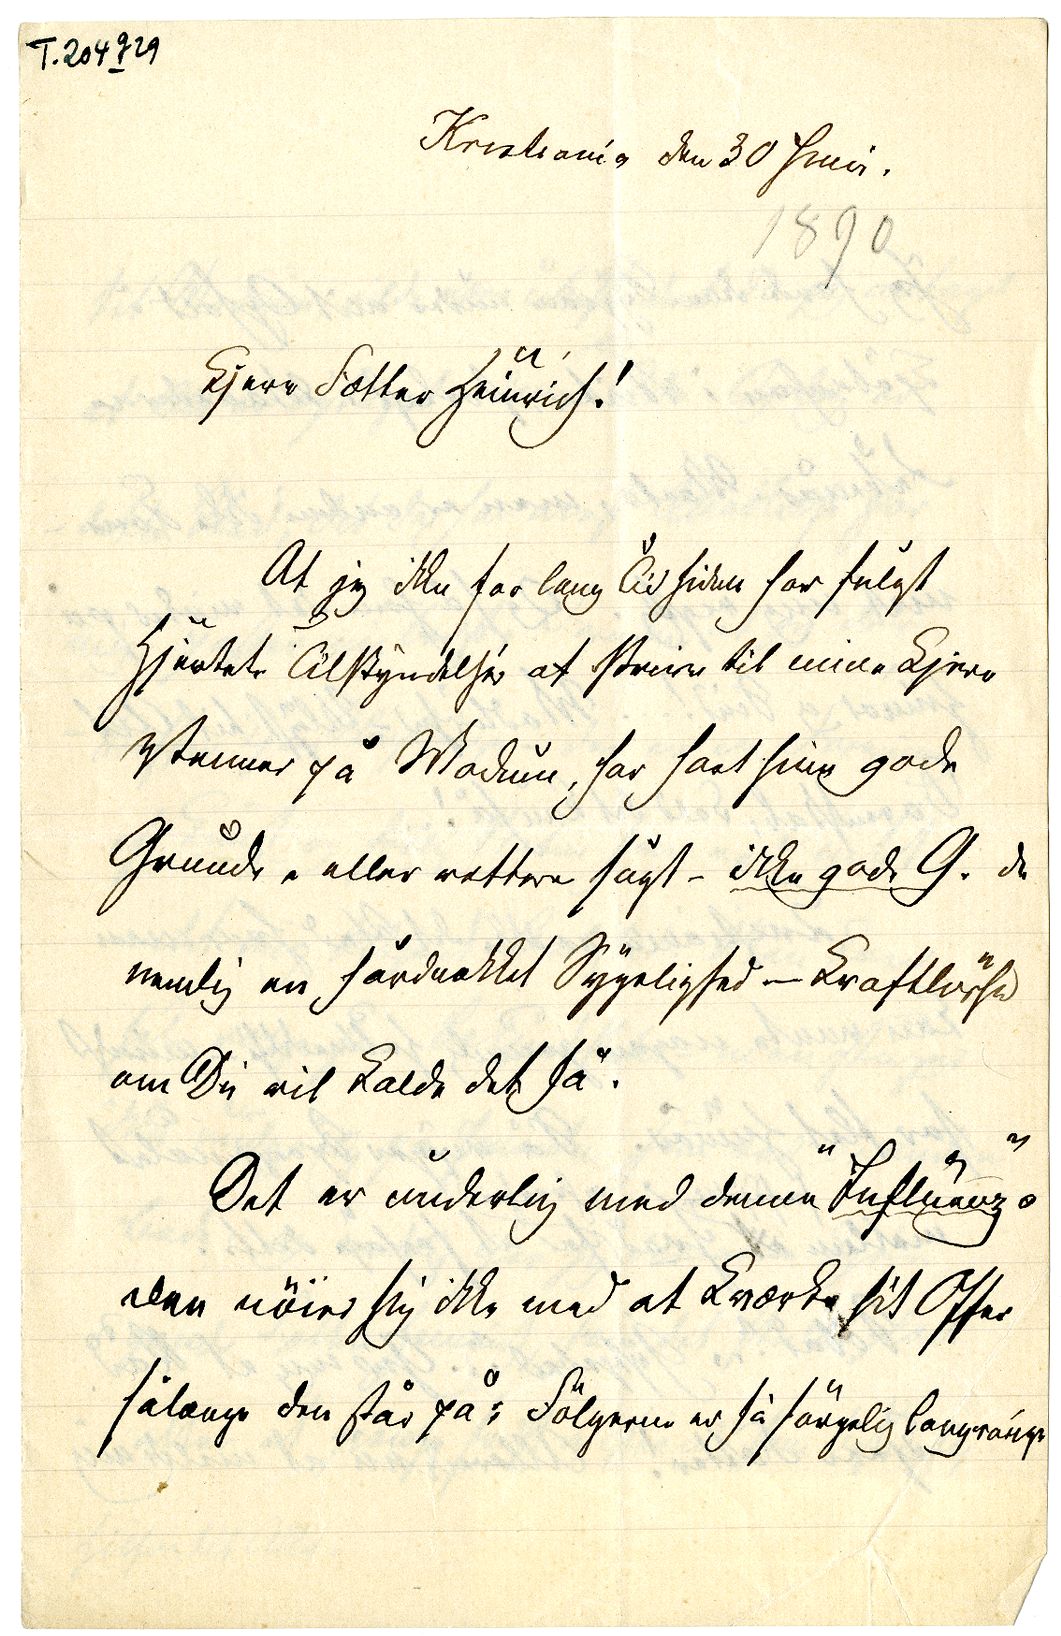 T.204 g 29
Kristiania den 30 Juni.
1890
Kjere Fetter Heinrich!
At jeg ikke for lang Tid siden har fulgt
Hjertets Tilskyndelse, at skrive til mine Kjere
Venner på Modum, har havt sine gode
Grunde, eller rettere sagt - ikke gode G. de
nemlig en hårdnakket Sygelighed — Kraftløshed
om Du vil kalde det så.
Det er underlig med denne "Influenza"
den nöies sig ikke med at Kværke sit Offer
sålænge den står på; Fölgerne er så sörgelig langvarige